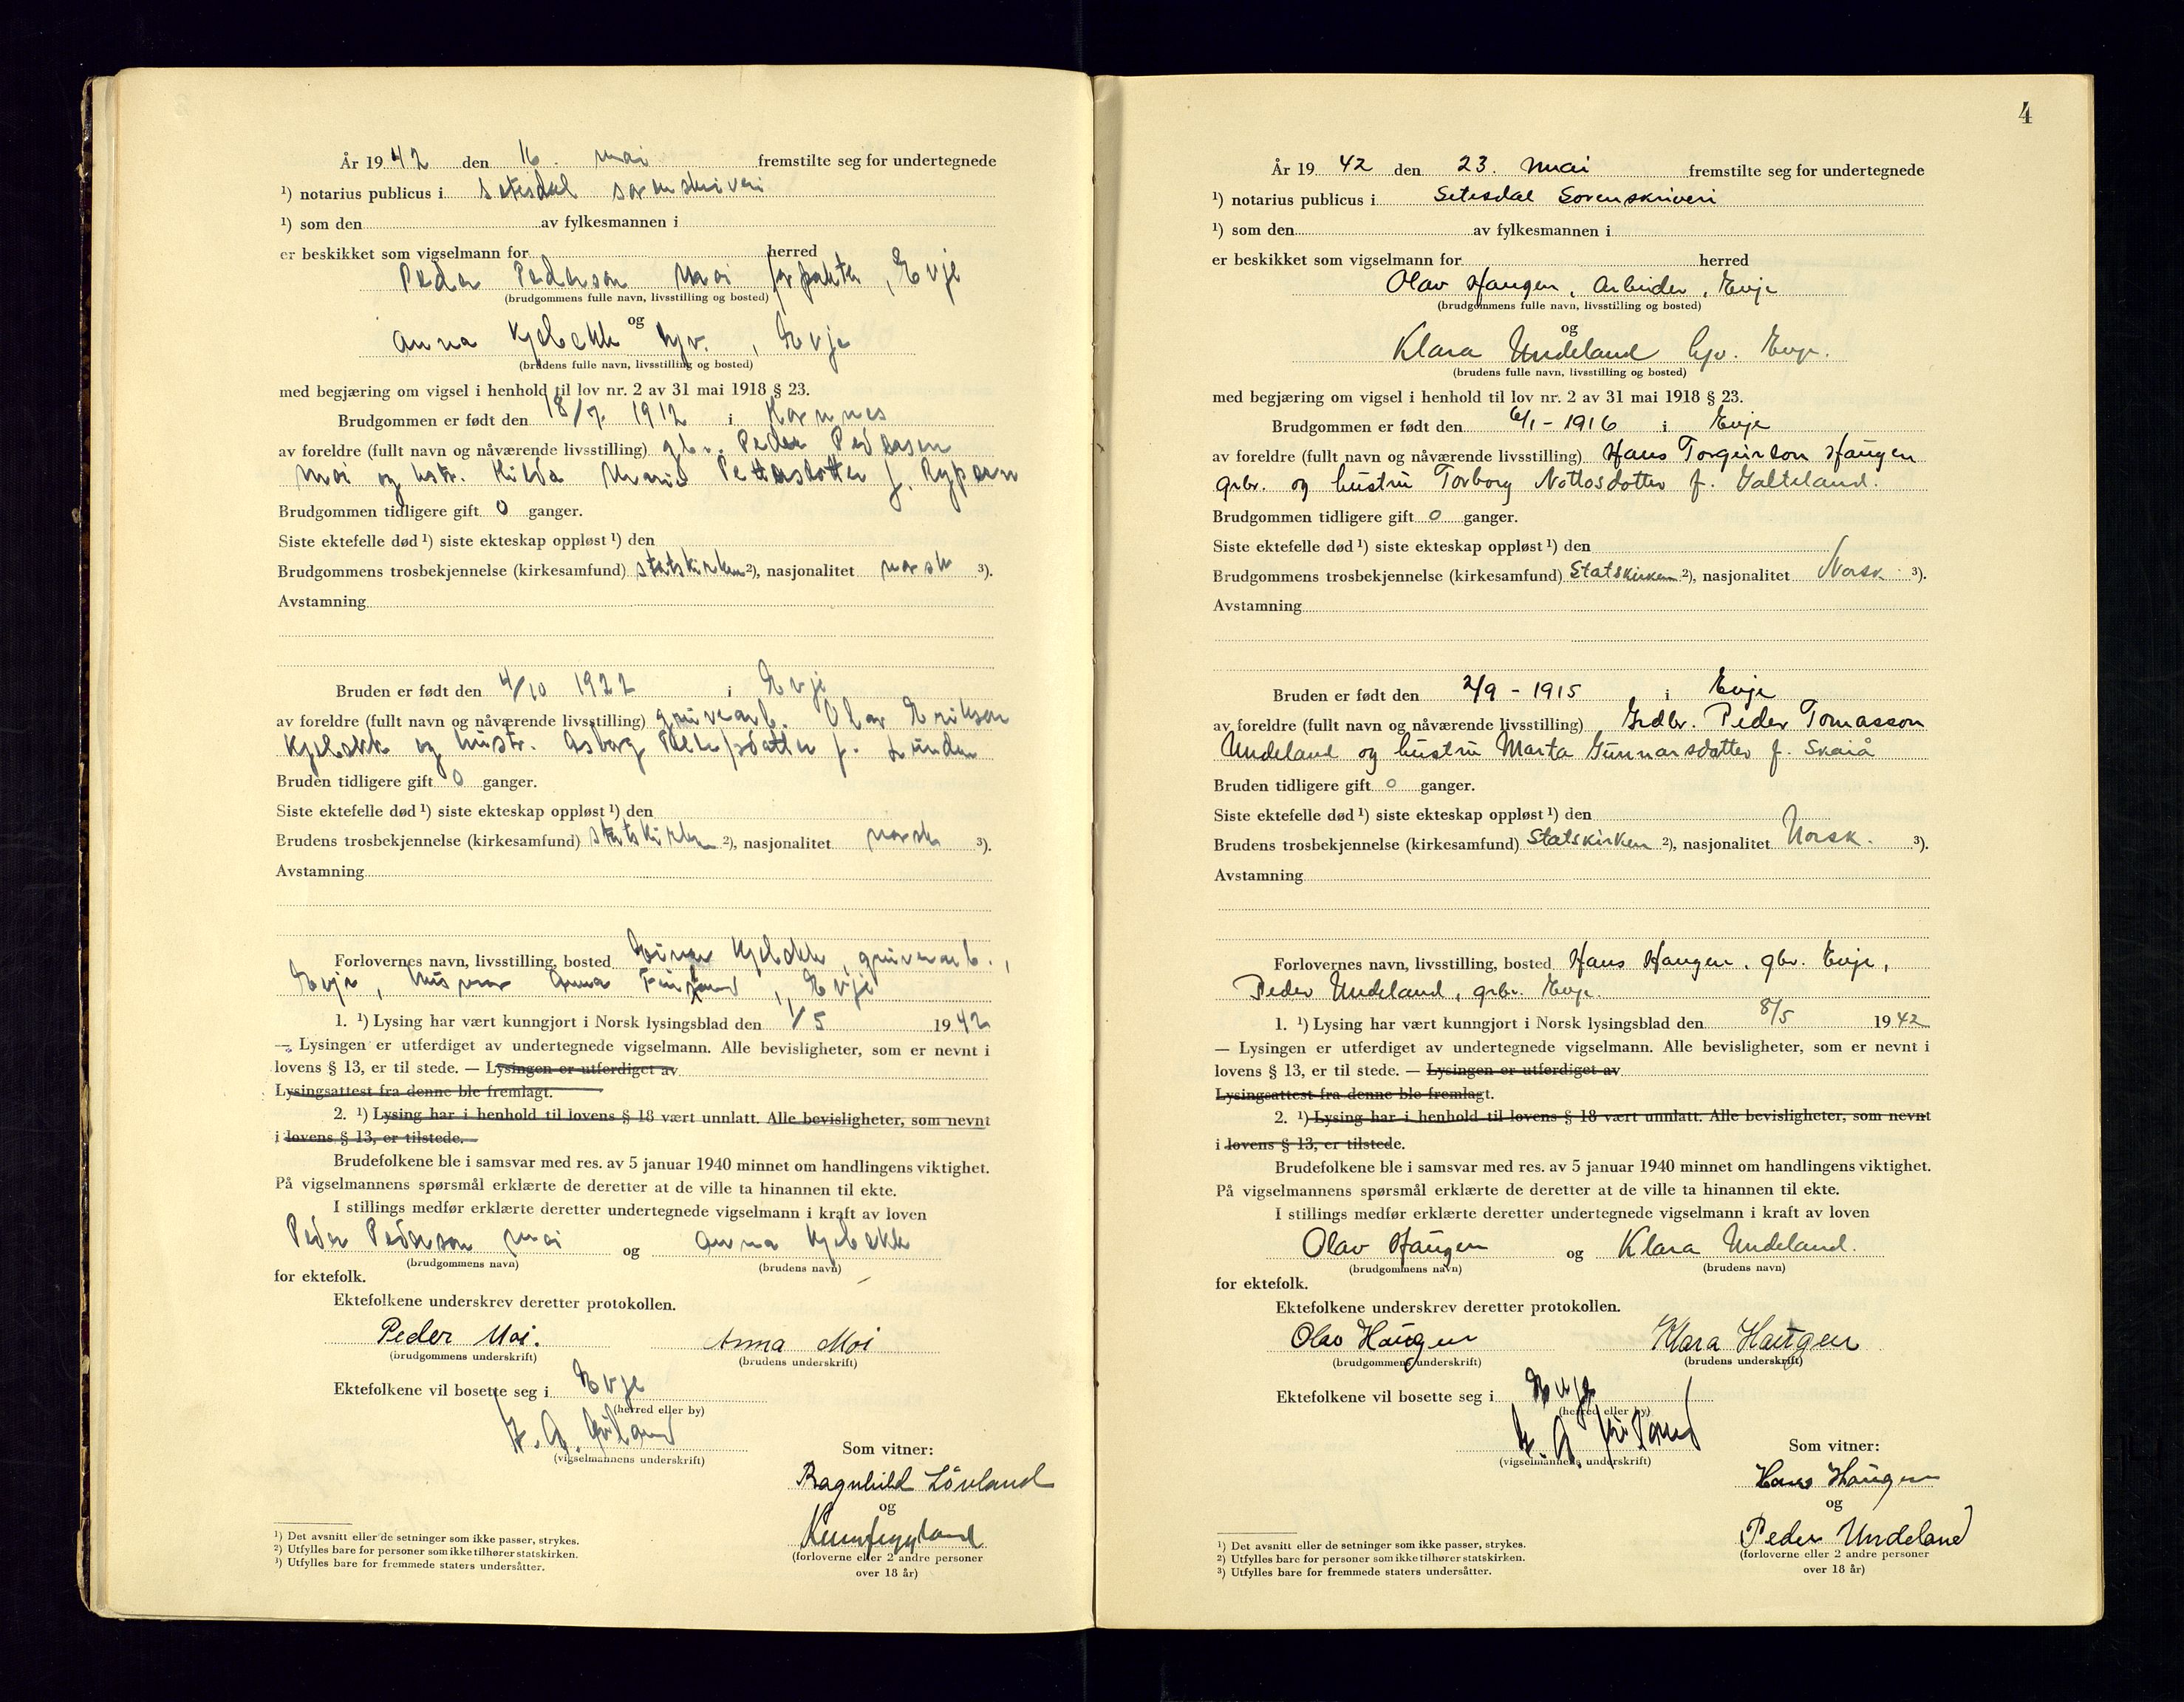 År 1942 den 16. mai fremstilte seg for undertegnede
¹) notarius publicus i Setesdal sorenskriveri
¹) som den av fylkesmannen i
er beskikket som vigselmann for herred
Peder Pederson Moi forpakter, Evje
(brudgommens fulle navn, livsstilling og bosted)
og
Anna Kjebekk hjv., Evje
(brudens fulle navn, livsstilling og bosted)
med begjæring om vigsel i henhold til lov nr. 2 av 31 mai 1918 § 23.
Brudgommen er født den 18/7 1912 i Hornnes
av foreldre (fullt navn og nåværende livsstilling) gbr. Peder Pedersen
Moi og hstr. Hilda Marie f. Rypern
Brudgommen tidligere gift 0 ganger.
Siste ektefelle død ¹) siste ekteskap oppløst ¹) den
Brudgommens trosbekjennelse (kirkesamfund) statskirken ²), nasjonalitet norsk ³).
Avstamning
Bruden er født den 4/10 1922 i Evje
av foreldre (fullt navn og nåværende livsstilling) gruvearb. Olav Erikson
Kjebekk og hustr. Asborg f. Lunden
Bruden tidligere gift 0 ganger.
Siste ektefelle død ¹) siste ekteskap oppløst ¹) den
Brudens trosbekjennelse (kirkesamfund) statskirken ²), nasjonalitet norsk ³).
Avstamning
Forlovernes navn, livsstilling, bosted Kjebekk, gruvearb.,
Evje, Anna, Evje
1. ¹) Lysing har vært kunngjort i Norsk lysingsblad den 1/5 1942
— Lysingen er utferdiget av undertegnede vigselmann. Alle bevisligheter, som er nevnt i
lovens § 13, er til stede. — Lysingen er utferdiget av
Lysingsattest fra denne ble fremlagt.
2. ¹) Lysing har i henhold til lovens § 18 vært unnlatt. Alle bevisligheter, som nevnt
i lovens § 13, er tilstede.
Brudefolkene ble i samsvar med res. av 5 januar 1940 minnet om handlingens viktighet.
På vigselmannens spørsmål erklærte de deretter at de ville ta hinannen til ekte.
I stillings medfør erklærte deretter undertegnede vigselmann i kraft av loven
Peder Pederson Moi og Anna Kjebekk
(brudgommens navn) (brudens navn)
for ektefolk.
Ektefolkene underskrev deretter protokollen.
Peder Moi. Anna Moi
(brudgommens underskrift) (brudens underskrift)
Ektefolkene vil bosette seg i Evje
(herred eller by)
(vigselmannens underskrift)
Som vitner:
Ragnhild Lövland
og
(forloverne eller 2 andre personer
over 18 år)
¹) Det avsnitt eller de setninger som ikke passer, strykes.
²) Utfylles bare for personer som ikke tilhører statskirken.
³) Utfylles bare for fremmede staters undersåtter.
4
År 1942 den 23. mai fremstilte seg for undertegnede
¹) notarius publicus i Setesdal Sorenskriveri
¹) som den av fylkesmannen i
er beskikket som vigselmann for herred
Olav Haugen, Arbeider, Evje
(brudgommens fulle navn, livsstilling og bosted)
og
Klara Undeland hjv. Evje.
(brudens fulle navn, livsstilling og bosted)
med begjæring om vigsel i henhold til lov nr. 2 av 31 mai 1918 § 23.
Brudgommen er født den 6/1 - 1916 i Evje
av foreldre (fullt navn og nåværende livsstilling) Hans Torgeirson Haugen
grbr. og hustru Torborg Nottosdotter f. Galteland.
Brudgommen tidligere gift 0 ganger.
Siste ektefelle død ¹) siste ekteskap oppløst ¹) den
Brudgommens trosbekjennelse (kirkesamfund) Statskirken ²), nasjonalitet Norsk ³).
Avstamning
Bruden er født den 2/9 - 1915 i Evje
av foreldre (fullt navn og nåværende livsstilling) Grdbr. Peder Tomasson
Undeland og hustru Marta Gunnarsdotter f. Skaiå
Bruden tidligere gift 0 ganger.
Siste ektefelle død ¹) siste ekteskap oppløst ¹) den
Brudens trosbekjennelse (kirkesamfund) Statskirken ²), nasjonalitet Norsk. ³).
Avstamning
Forlovernes navn, livsstilling, bosted Hans Haugen, gbr. Evje,
Peder Undeland, grbr. Evje.
1. ¹) Lysing har vært kunngjort i Norsk lysingsblad den 8/5 1942
— Lysingen er utferdiget av undertegnede vigselmann. Alle bevisligheter, som er nevnt i
lovens § 13, er til stede. — Lysingen er utferdiget av
Lysingsattest fra denne ble fremlagt.
2. ¹) Lysing har i henhold til lovens § 18 vært unnlatt. Alle bevisligheter, som nevnt
i lovens § 13, er tilstede.
Brudefolkene ble i samsvar med res. av 5 januar 1940 minnet om handlingens viktighet.
På vigselmannens spørsmål erklærte de deretter at de ville ta hinannen til ekte.
I stillings medfør erklærte deretter undertegnede vigselmann i kraft av loven
Olav Haugen og Klara Undeland.
(brudgommens navn) (brudens navn)
for ektefolk.
Ektefolkene underskrev deretter protokollen.
Olav Haugen Klara Haugen
(brudgommens underskrift) (brudens underskrift)
Ektefolkene vil bosette seg i Evje
(herred eller by)
(vigselmannens underskrift)
Som vitner:
Hans Haugen
og
Peder Undeland
(forloverne eller 2 andre personer
over 18 år)
¹) Det avsnitt eller de setninger som ikke passer, strykes.
²) Utfylles bare for personer som ikke tilhører statskirken.
³) Utfylles bare for fremmede staters undersåtter.